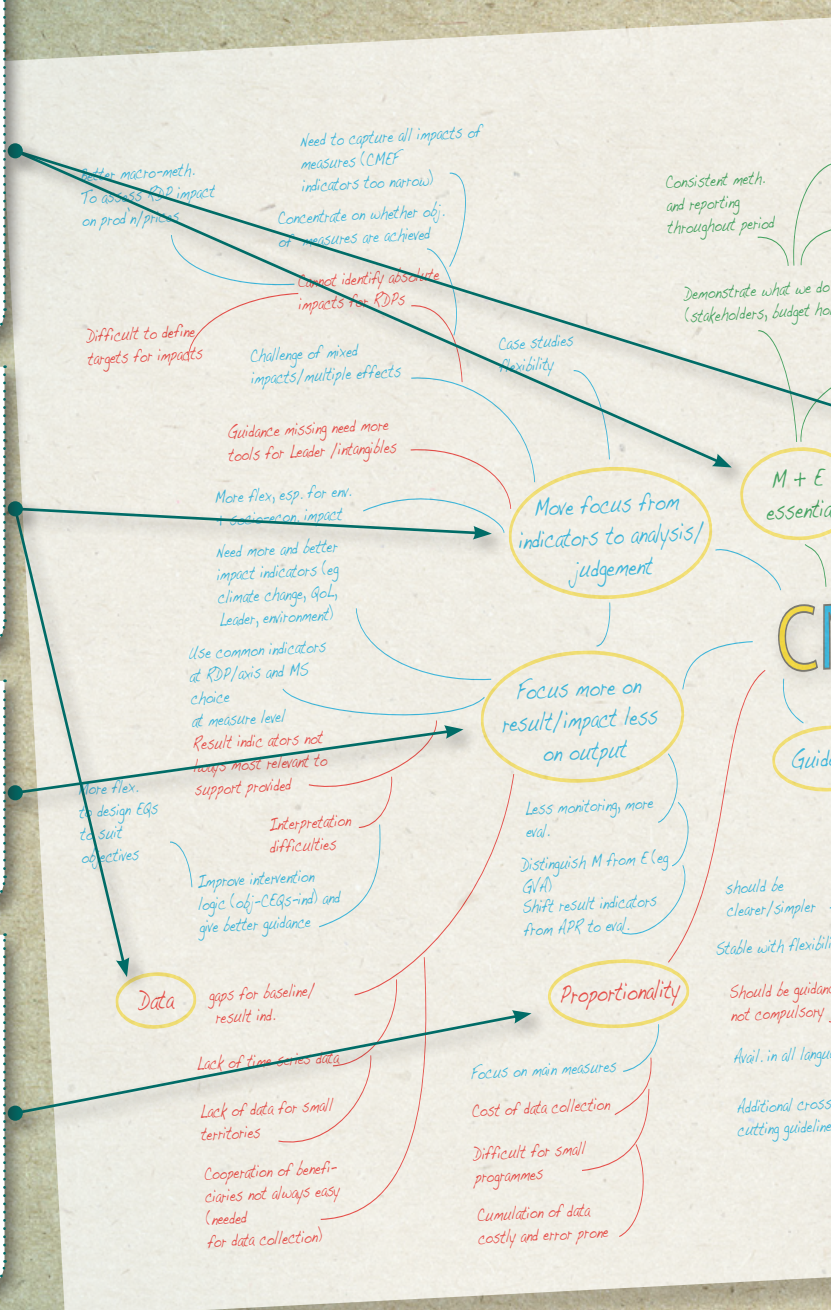 Need to capture all impacts of
measures (CMEF
indicators too narrow)
Better macro-meth.
To assess RDP impact
on prod'n/prices
Concentrate on whether obj.
of measures are achieved
Cannot identify absolute
impacts for RDPs
Difficult to define
targets for impacts
Challenge of mixed
impacts/multiple effects
Case studies
flexibility
Guidance missing need more
tools for Leader /intangibles
More flex, esp. for env.
+ socio-econ. impact
Need more and better
impact indicators (eg
climate change, QoL,
Leader, environment)
Use common indicators
at RDP/axis and MS
choice
at measure level
Result indic ators not
lways most relevant to
support provided
More flex.
to design EQs
to suit
objectives
Interpretation
difficulties
Improve intervention
logic (obj-CEQs-ind) and
give better guidance
Move focus from
indicators to analysis/
judgement
Focus more on
result/impact less
on output
Less monitoring, more
eval.
Distinguish M from E (eg
GVA)
Shift result indicators
from APR to eval.
Data
gaps for baseline/
result ind.
Lack of time series data
Lack of data for small
territories
Cooperation of benefi-
ciaries not always easy
(needed
for data collection)
Proportionality
Focus on main measures
Cost of data collection
Difficult for small
programmes
Cumulation of data
costly and error prone
Consistent meth.
and reporting
throughout period
Demonstrate what we do
(stakeholders, budget ho
M + E
essentia
C
Guid
should be
clearer/simpler
Stable with flexibili
Should be guidanc
not compulsory
Avail. in all langu
Additional cross
cutting guideline